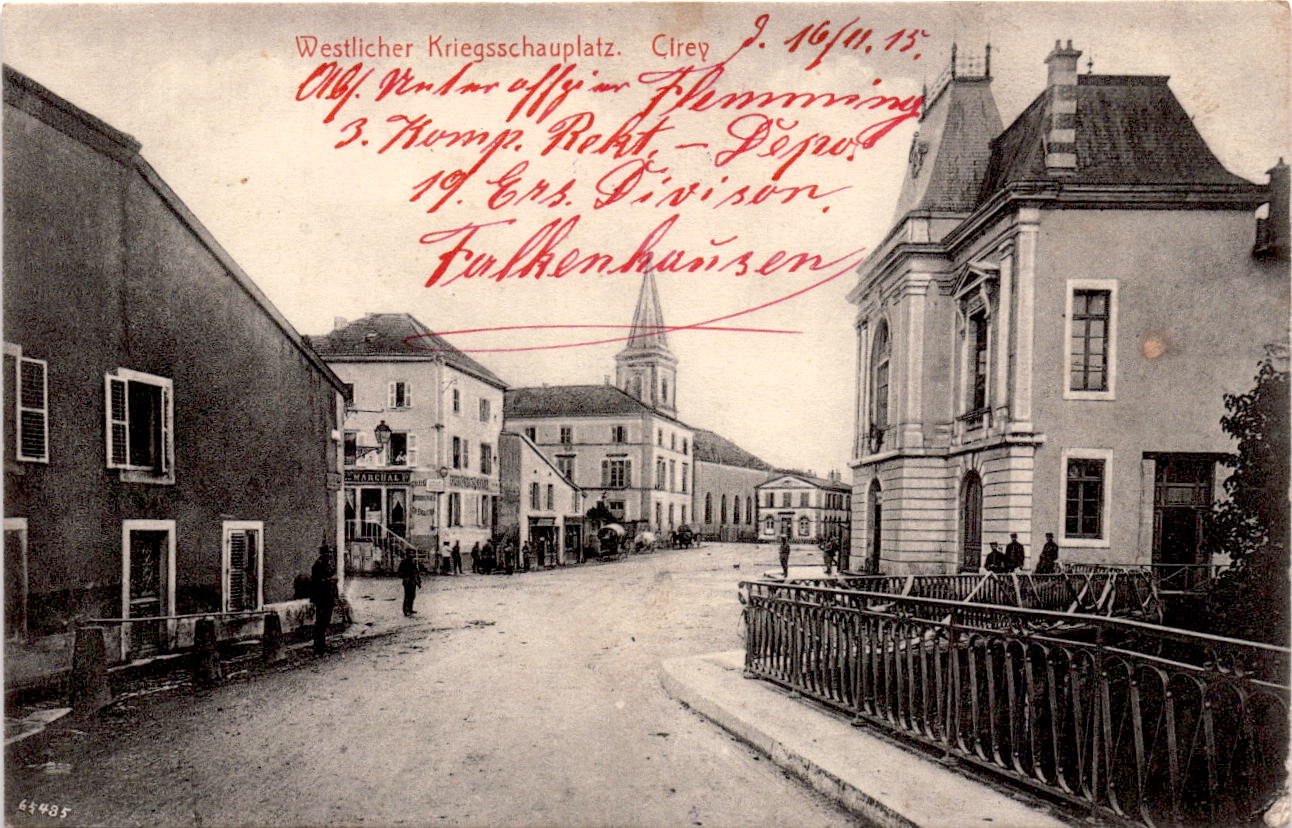 Westlicher Kriegsschauplatz. Cirey
J. 16/11.15.
Abs. Unteroffizier Flemming
3. Komp. Rekt. - Depo.
19. Ers. Divison.
Falkenhausen
MARCHAL
65485